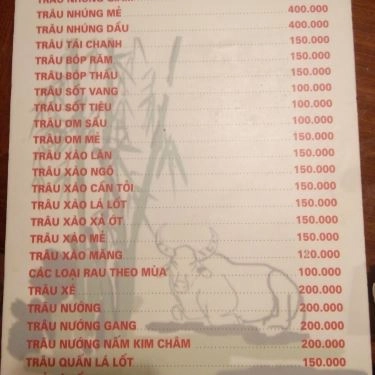 TRÂU NHÚNG GIẤM
TRÂU NHÚNG MẺ 400.000
TRÂU NHÚNG DẤU 400.000
TRÂU TÁI CHANH 150.000
TRÂU BÓP RẤM 150.000
TRÂU BÓP THẤU 150.000
TRÂU SỐT VANG 100.000
TRÂU SỐT TIÊU 100.000
TRÂU OM SẤU 100.000
TRÂU OM MẺ 150.000
TRÂU XÀO LĂN 150.000
TRÂU XÀO NGÔ 150.000
TRÂU XÀO CẦN TỎI 150.000
TRÂU XÀO LÁ LỐT 150.000
TRÂU XÀO XẢ ỚT 150.000
TRÂU XÀO MẺ 150.000
TRÂU XÀO MĂNG 120.000
CÁC LOẠI RAU THEO MÙA 100.000
TRÂU XÉ 200.000
TRÂU NƯỚNG 200.000
TRÂU NƯỚNG GANG 200.000
TRÂU NƯỚNG NẤM KIM CHÂM 200.000
TRÂU QUẤN LÁ LỐT 150.000